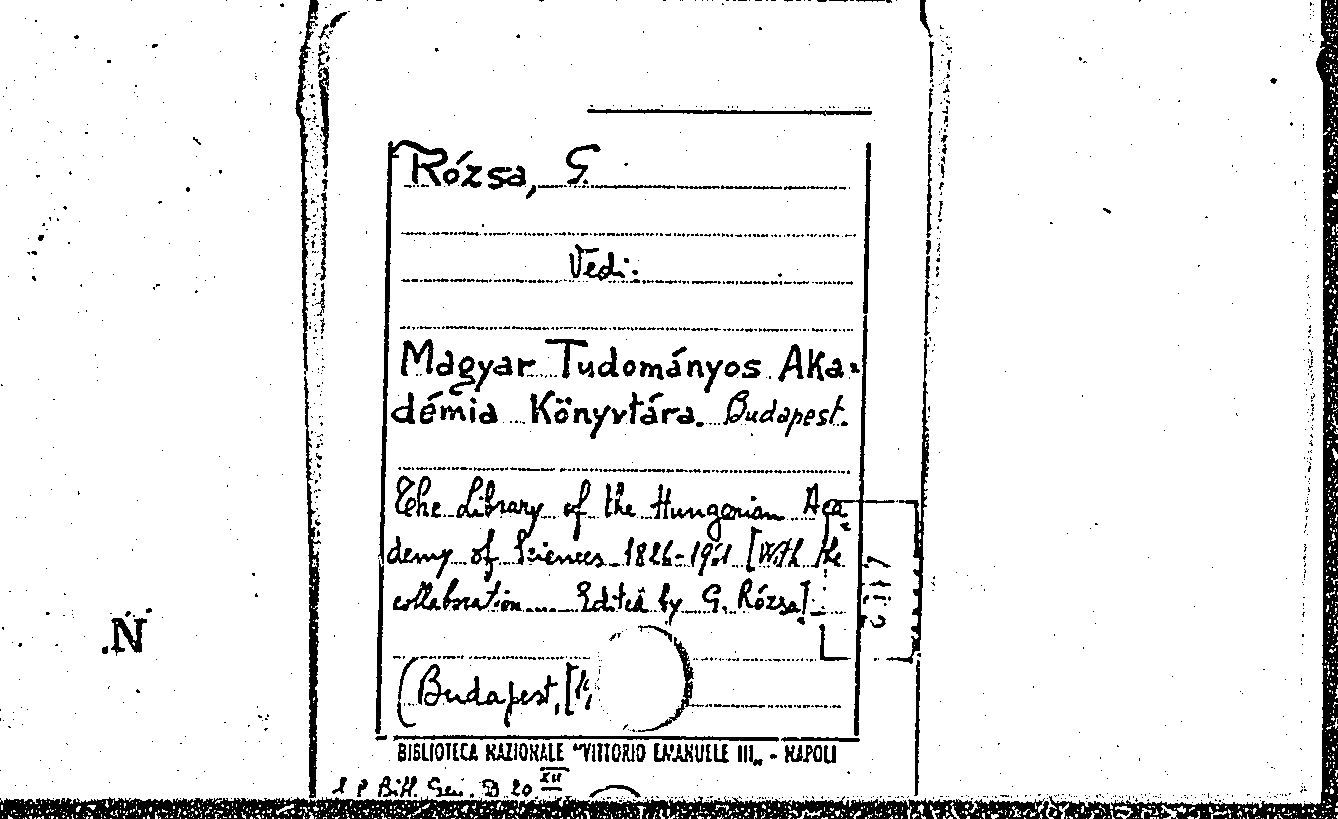 Rózsa, G.
Vedi:
Magyar Tudományos Aka-
démia Könyvtára. Budapest.
The Library of the Hungarian Aca-
demy of Sciences 1826-1961 [With the
collaboration.... Edited by G. Rózsa].
(Budapest,
BIBLIOTECA NAZIONALE "VITTORIO EMANUELE III" - NAPOLI
D 20 XII
.N